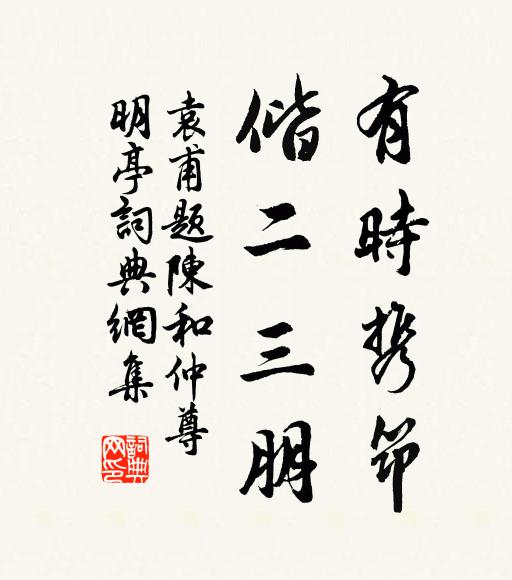 有時携筇
偕二三朋
袁甫題陳和仲尊
明亭詞典網集
詞典网印